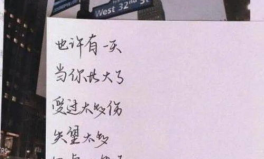 West 32nd St
也许有一天
当你长大了
受过太多伤
失望太多